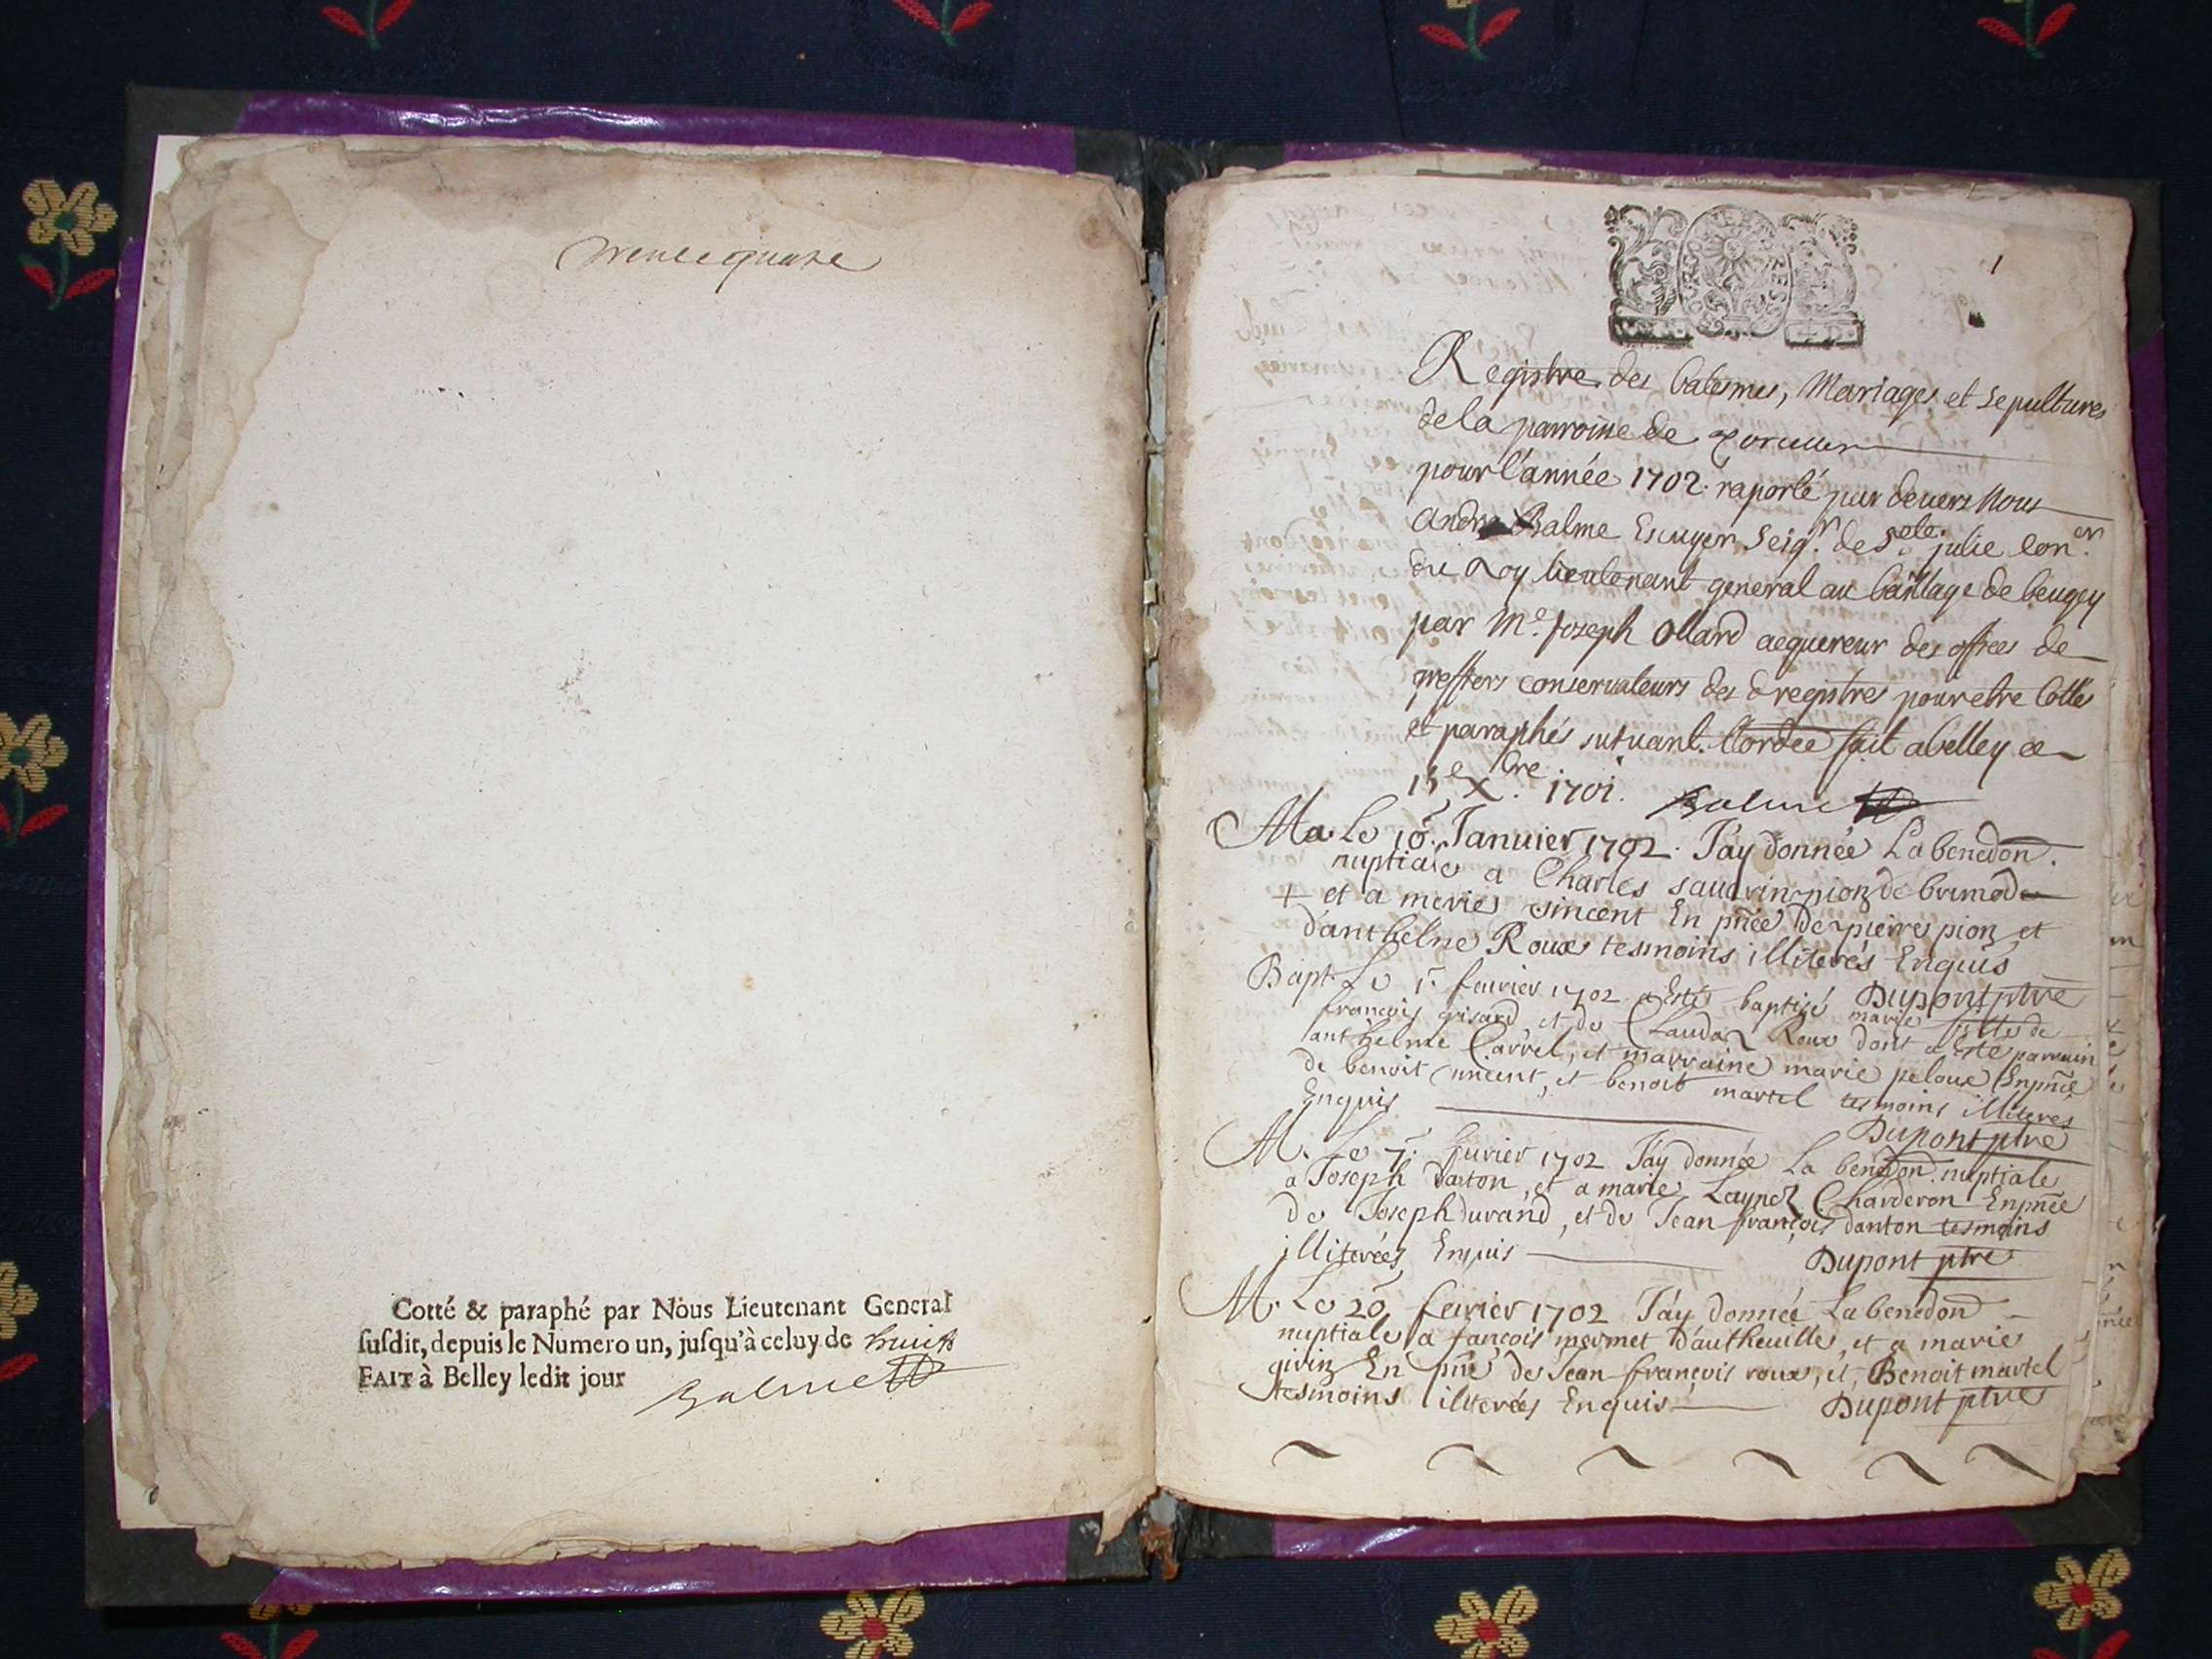 trente quatre
Cotté & paraphé par Nous Lieutenant General
susdit, depuis le Numero un, jusqu'à celuy de huict
FAIT à Belley ledit jour
Balme
1
Registre des batesmes, Mariages et sepultures
de la parroisse de
pour l'année 1702. raporté par devers Nous
André Balme Escuyer Seigr. de Ste. julie Coner.
du Roy lieutenant general au bailliage de beugey
par Me. Joseph Ollard acquereur des offices de
greffiers conservateurs des d registres pour etre Cottes
et paraphés suivant. fait a belley ce
Xbre. 1701. Balme
Ma. Le Januier 1702. J'ay donnée La benedon.
nuptiale a Charles pion de
+ et a marie vincent En pnce de pierre pion et
d'anthelme Roux tesmoins illiterés Enquis
Bapt. Le 1. feurier 1702 a Esté baptisé marie fille de Dupont ptre
françois grisard, et de Clauda Roux dont a Esté parrain
anthelme Carrel, et marraine marie peloux Enpnce
de benoit vincent, et benoit martel tesmoins illiteres
Enquis Dupont ptre
M. Le 7. feurier 1702 J'ay donnée La benedon. nuptiale
a Joseph et a marie Charderon Enpnce
de Joseph durand, et de Jean françois danton tesmoins
illiterées Enquis Dupont ptre
M. Le 20 feurier 1702 J'ay donnée La benedon
nuptiale a françois mermet d'autheuille, et a marie
En pnce de Jean françois roux, et, Benoit martel
tesmoins illiterées Enquis Dupont ptre